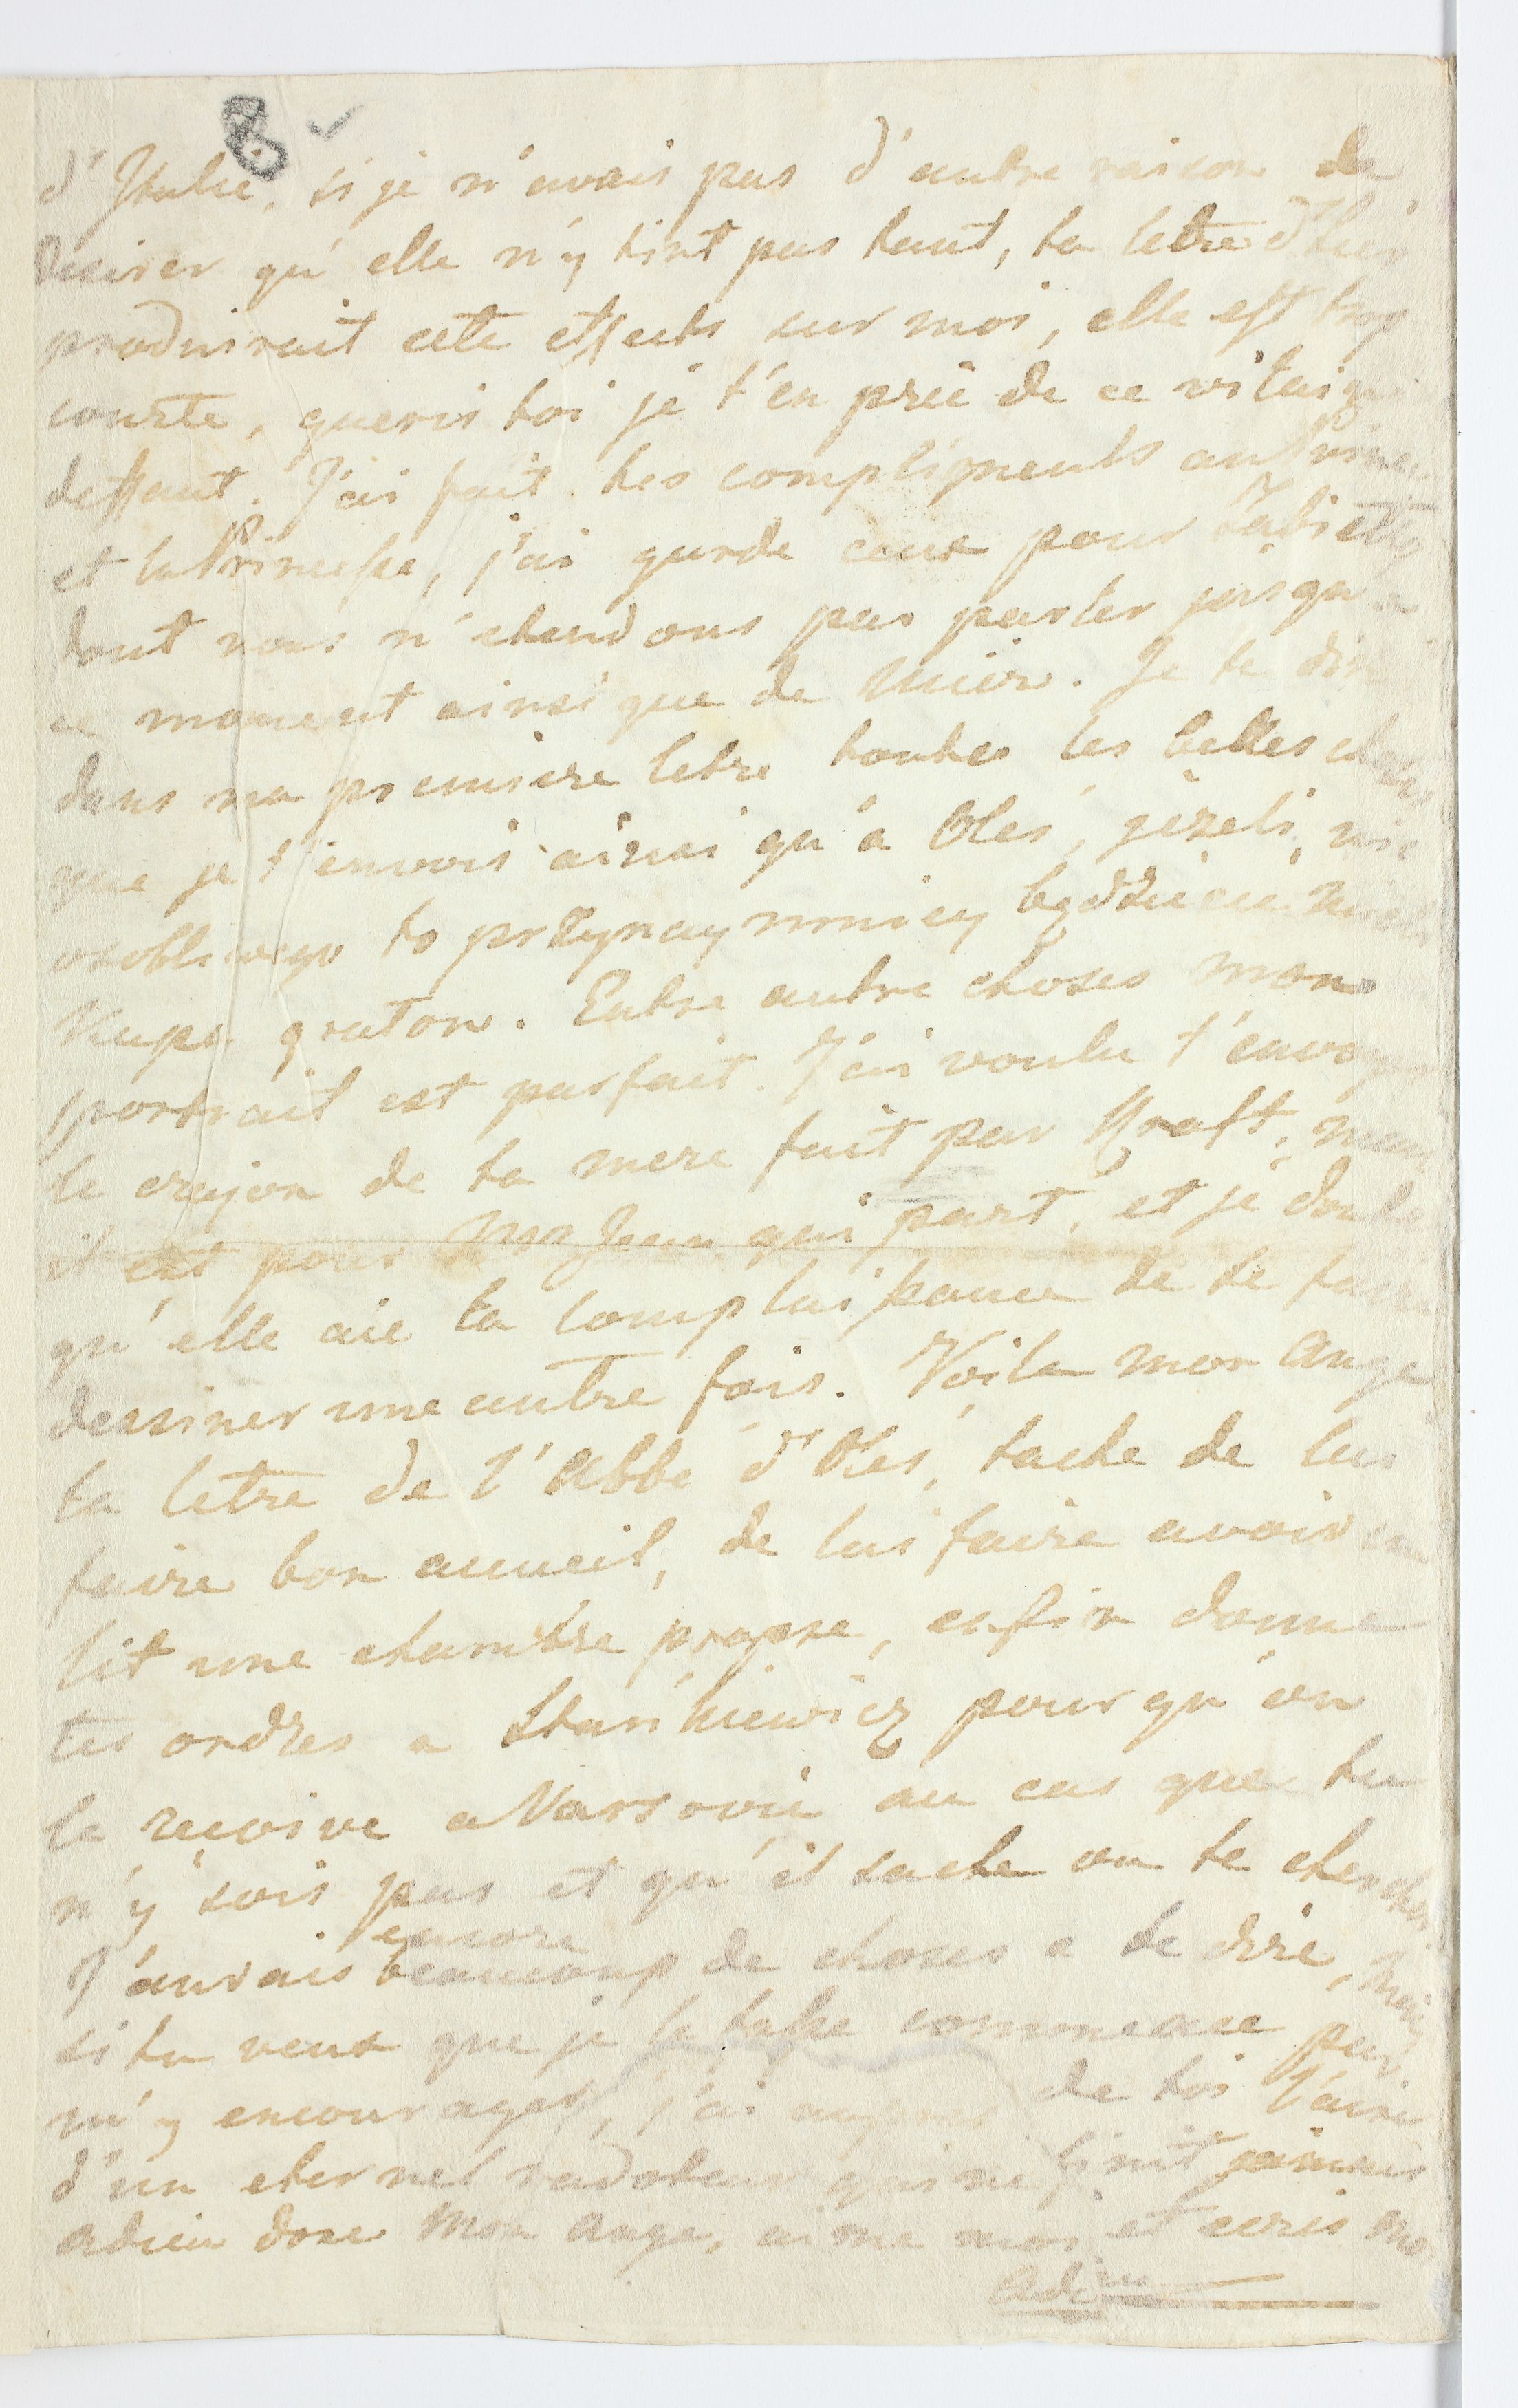 8
d'Italie, si je n'avais pas d'autre raison de
desirer qu'elle n'y tint pas tant, ta letre d'hier
produirait cete effects sur moi, elle est trop
courte, gueris toi je t'en prie de ce vilain
deffaut. J'ai fait tes complipments au Prince
et la Princesse, j'ai garde ceux pour
dont nous n'etendons pas parler jusqu'a
ce moment ainsi que de Muir. Je te dir
dans ma premiere letre toutes les belles choses
que je t'envois ainsi qu'a Oles, jezeli, nic
osobliwego to przynaymniey będziecie mieli
kupę gratow. Entre autre choses mon
portrait est parfait. J'ai voulu t'envoyer
le crajon de ta mere fait par Kraft, mais
il est pour Mr Jean qui part, et je doute
qu'elle aie la complaisance de se faire
dessiner une autre fois. Voila mon Ange
la letre de l'Abbé d'Oles, tache de lui
faire bon acueil, de lui faire avoir un
lit une chambre propre, enfin donne
tes ordres a Stankiewicz pour qu'on
le reçoive a Varsovie au cas que tu
n'y sois pas et qu'il sache ou te chercher
J'aurais encore beaucoup de choses a te dire, mais
si tu veux que je le fasse commence par
m'y encourager, j'ai aupres de toi l'air
d'un eternel radoteur qui ne finit jamais
adieu donc Mon Ange, aime moi et ecris moi
Adieu